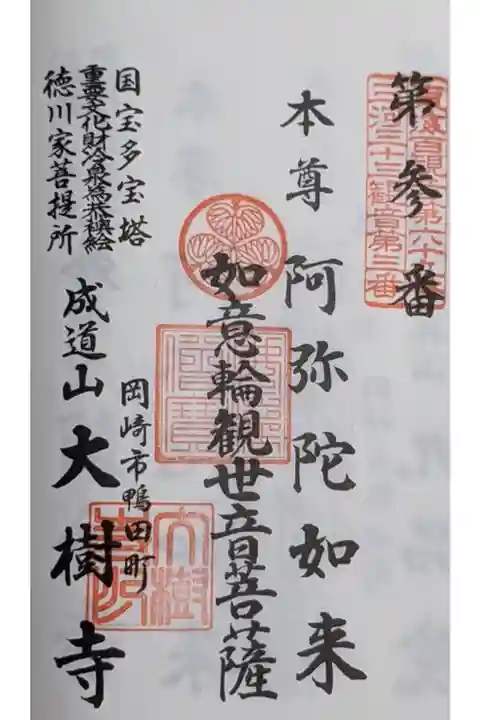 第参番
三河三十三観音第三番
本尊 阿弥陀如来
如意輪観世音菩薩
岡崎市鴨田町
国宝多宝塔
重要文化財冷泉為恭襖絵
徳川家菩提所
成道山 大樹寺
大樹寺印